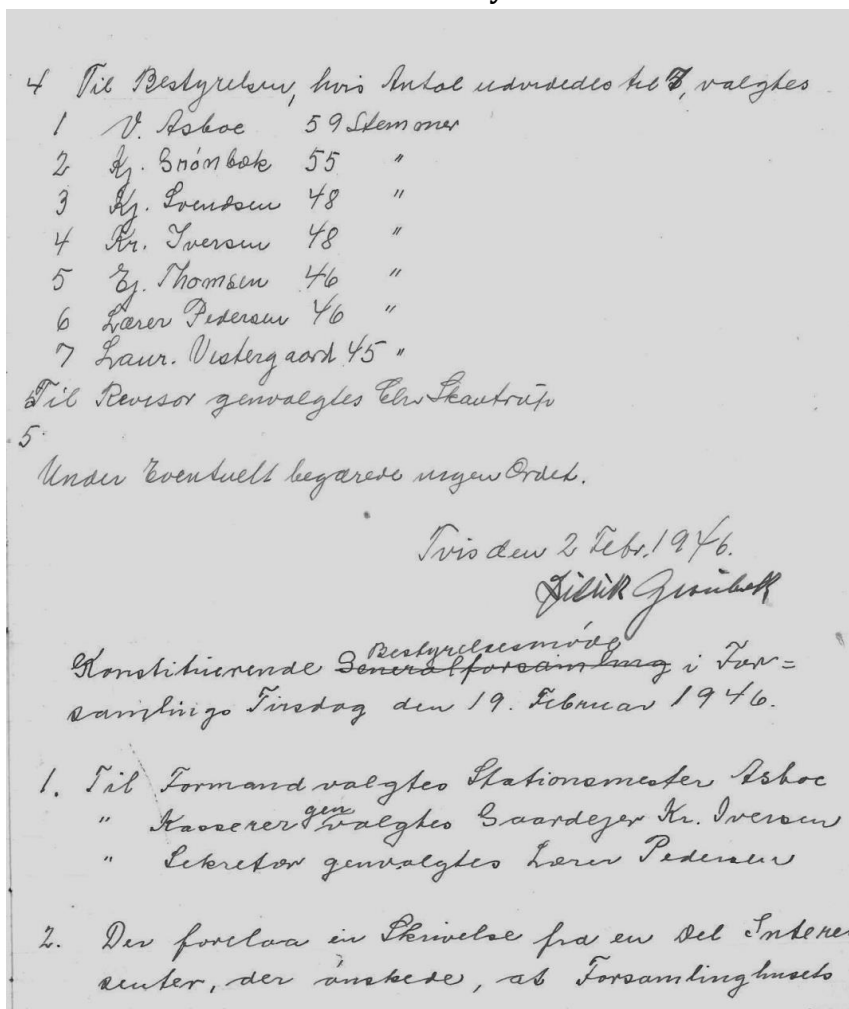 4 Til Bestyrelsen, hvis Antal udvidedes til 7, valgtes
1 V. Asboe 59 Stemmer
2 Kj. Grönbæk 55 "
3 Kj. Svendsen 48 "
4 Kr. Iversen 48 "
5 Ej. Thomsen 46 "
6 Lærer Pedersen 46 "
7 Laur. Vestergaard 45 "
Til Revisor genvalgtes Chr Skautrup
5
Under Eventuelt begærede ingen Ordet.
Tvis den 2 Febr. 1946.
Bestyrelsesmöde
Konstituerende Generalforsamling i For=
samlings Tirsdag den 19. Februar 1946.
1. Til Formand valgtes Stationsmester Asboe
" Kasserer genvalgtes Gaardejer Kr. Iversen
" Sekretær genvalgtes Lærer Pedersen
2. Der forelaa en Skrivelse fra en Del Interes
senter, der önskede, at Forsamlinghusets